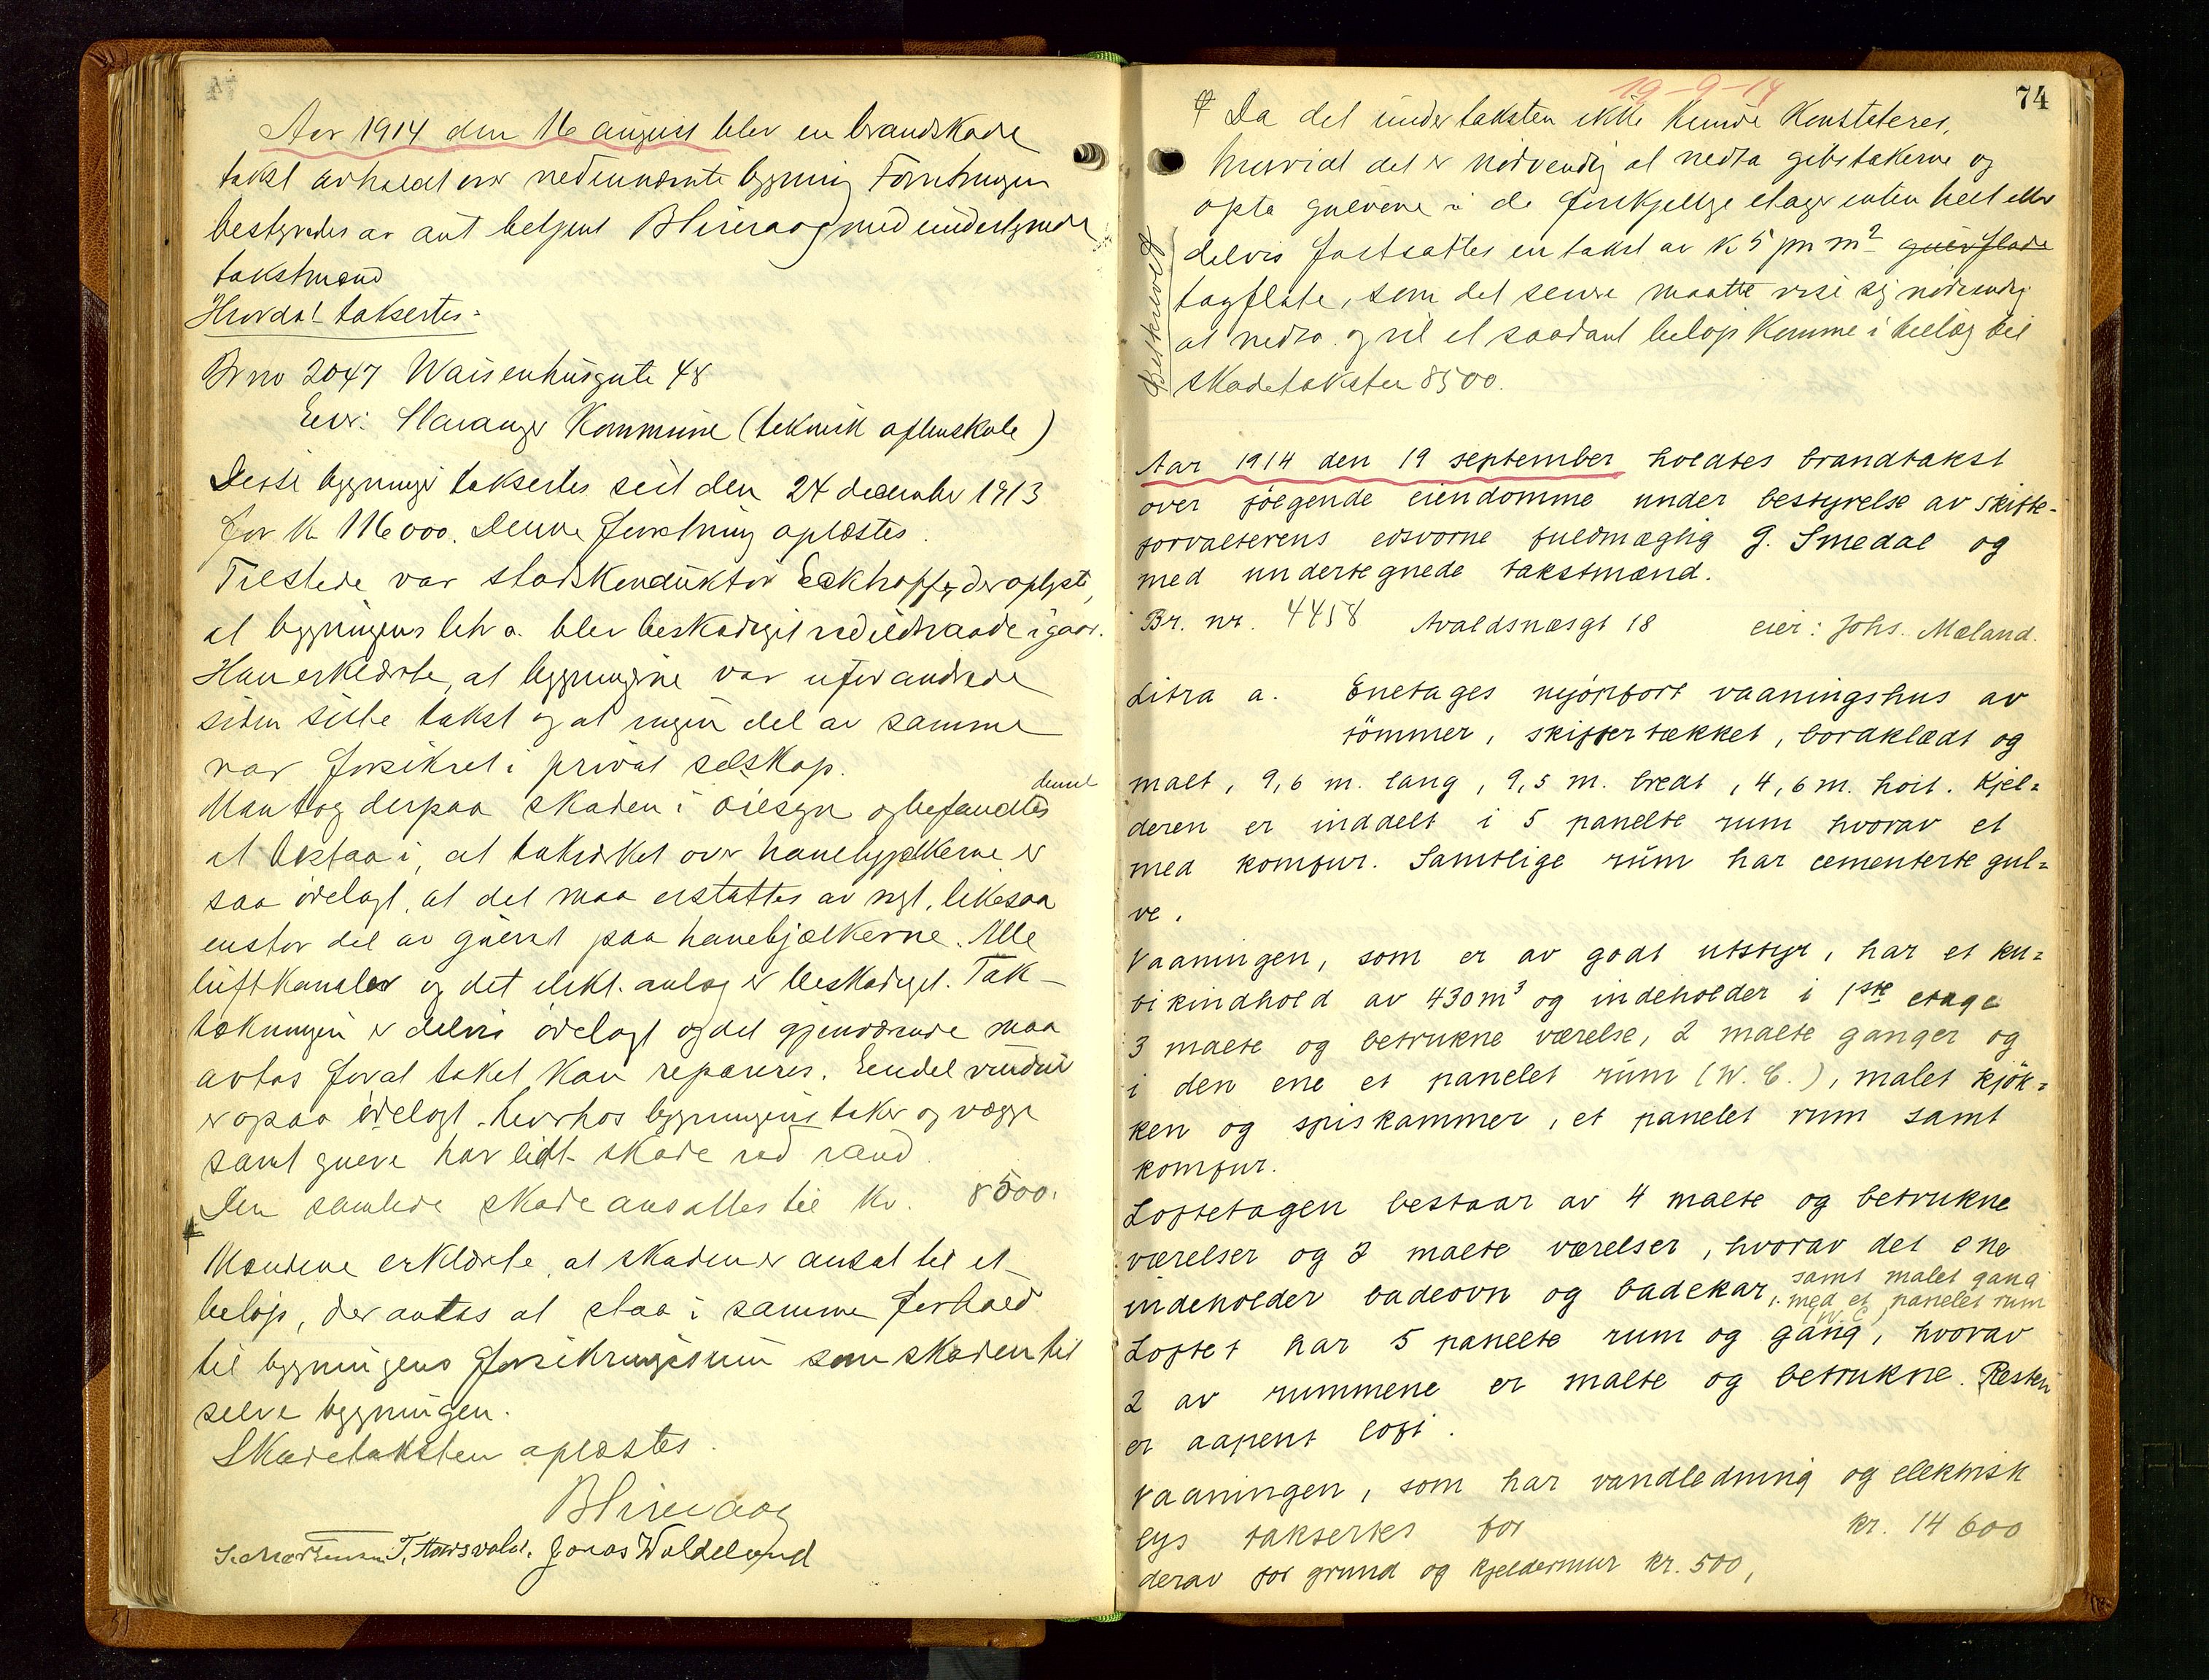 Aar 1914 den 16 august blev en brandskade
takst avholdt over nedennævnte bygning Forretningen
bestyredes av amt betjent med undertegnede
takstmænd
Hvorda! taksertes:
Br no 2047 Waisenhusgate 48
Eier: Stavanger Kommune (teknisk aftenskole)
Disse bygninger taksertes sist den 24 december 1913
for kr 116000. Denne forretning oplæstes.
Tilstede var stadskonduktør Eckhoff, der oplyste,
at bygningens litr a. blev beskadiget ved ildsvaade igaar.
Han erklærte, at bygningerne var uforandrede
siden siste takst og at ingen del av samme
var forsikret i privat selskap.
Man tog derpaa skaden i øiesyn og befandtes denne
at bestaa i, at takverket over hanebjælkerne er
saa ødelagt, at det maa erstattes av nyt, likesaa
en stor del av gulvet paa hanebjælkerne. Alle
luftkanaler og det elekt. anlæg er beskadiget. Tak-
tækningen er delvis ødelagt og det gjenværende maa
avtas forat taket kan repareres. Endel vinduer
er ogsaa ødelagt. hvorhos bygningens taker og vægge
samt gulve har lidt skade ved vand.
Den samlede skade ansattes til Kr. 8500.
Mændene erklærte, at skaden er ansat til et
beløp, der antas at staa i samme forhold
til bygningens forsikringssum som skaden til
selve bygningen.
Skadetaksten oplæstes.
S. Mortensen T. Hausvold. Jonas Waldeland
74
19-9-14
Da det under taksten ikke kunde konstateres,
hvorvidt det er nødvendig at nedta gibstakerne og
opta gulvene i de forskjellige etager enten helt eller
delvis fastsattes en takst av K 5 pr m² gulvflate
tagflate, som det senere maatte vise sig nødvendig
at nedta. og vil et saadant beløp komme i tillæg til
skadetaksten 8500.
Aar 1914 den 19 september holdtes brandtakst
over følgende eiendomme under bestyrelse av skifte-
forvalterens edsvorne fuldmægtig G. Smedal og
med undertegnede takstmænd.
Br. nr. 4458 Avaldsnæsgt 18 eier: Johs. Mæland.
Litra a. Enetages nyopført vaaningshus av
tömmer, skifertækket, bordklædt og
malt, 9,6 m. lang, 9,5 m. bredt, 4,6 m. høit. Kjel=
deren er inddelt i 5 panelte rum hvorav et
med komfur. Samtlige rum har cementerte gul=
ve.
Vaaningen, som er av godt utstyr, har et ku=
bikindhold av 430m³ og indeholder i 1ste etage
3 malte og betrukne værelse, 2 malte ganger og
i den ene et panelet rum (W.C.), malet kjök=
ken og spiskammer, et panelet rum samt
komfur.
Loftetagen bestaar av 4 malte og betrukne
værelser og 2 malte værelser, hvorav det ene
indeholder badeovn og badekar, samt malet gang
med et panelet rum
(W.C)
Loftet har 5 panelte rum og gang, hvorav
2 av rummene er malte og betrukne. Resten
er aapent loft.
Vaaningen, som har vandledning og elektrisk
lys takseres for kr. 14 600
derav for grund og kjeldermur kr. 500,